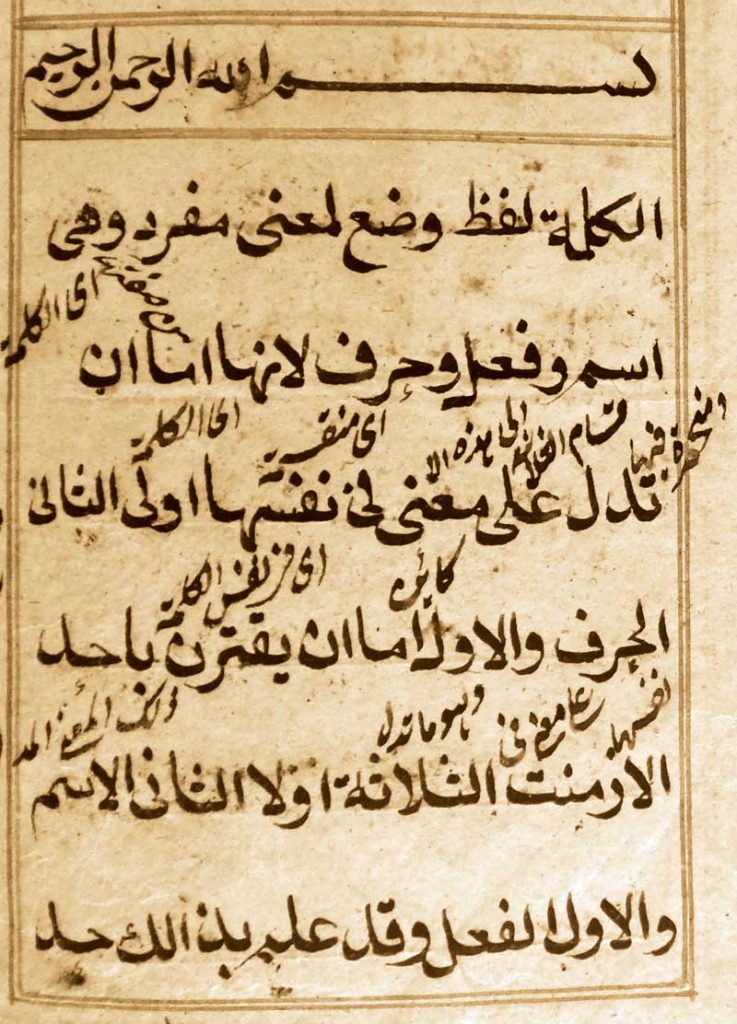 بسم الله الرحمن الرحيم
الكلمة لفظ وضع لمعنى مفرد وهى
اى الكلمة
اسم وفعل وحرف لانها اما ان
منحصرة فيها
اى منقسمة الى هذه الا قسام الثلاثة
اى الكلمة
تدل على معنى فى نفسها اولى الثانى
كائن
اى فى نفس الكلمة
الحرف والاول اما ان يقترن باحد
وهو ما تدل على معنى فى نفسها
ذلك المعنى
الازمنت الثلاثة اولا الثانى الاسم
والاول الفعل وقد علم بذالك حد